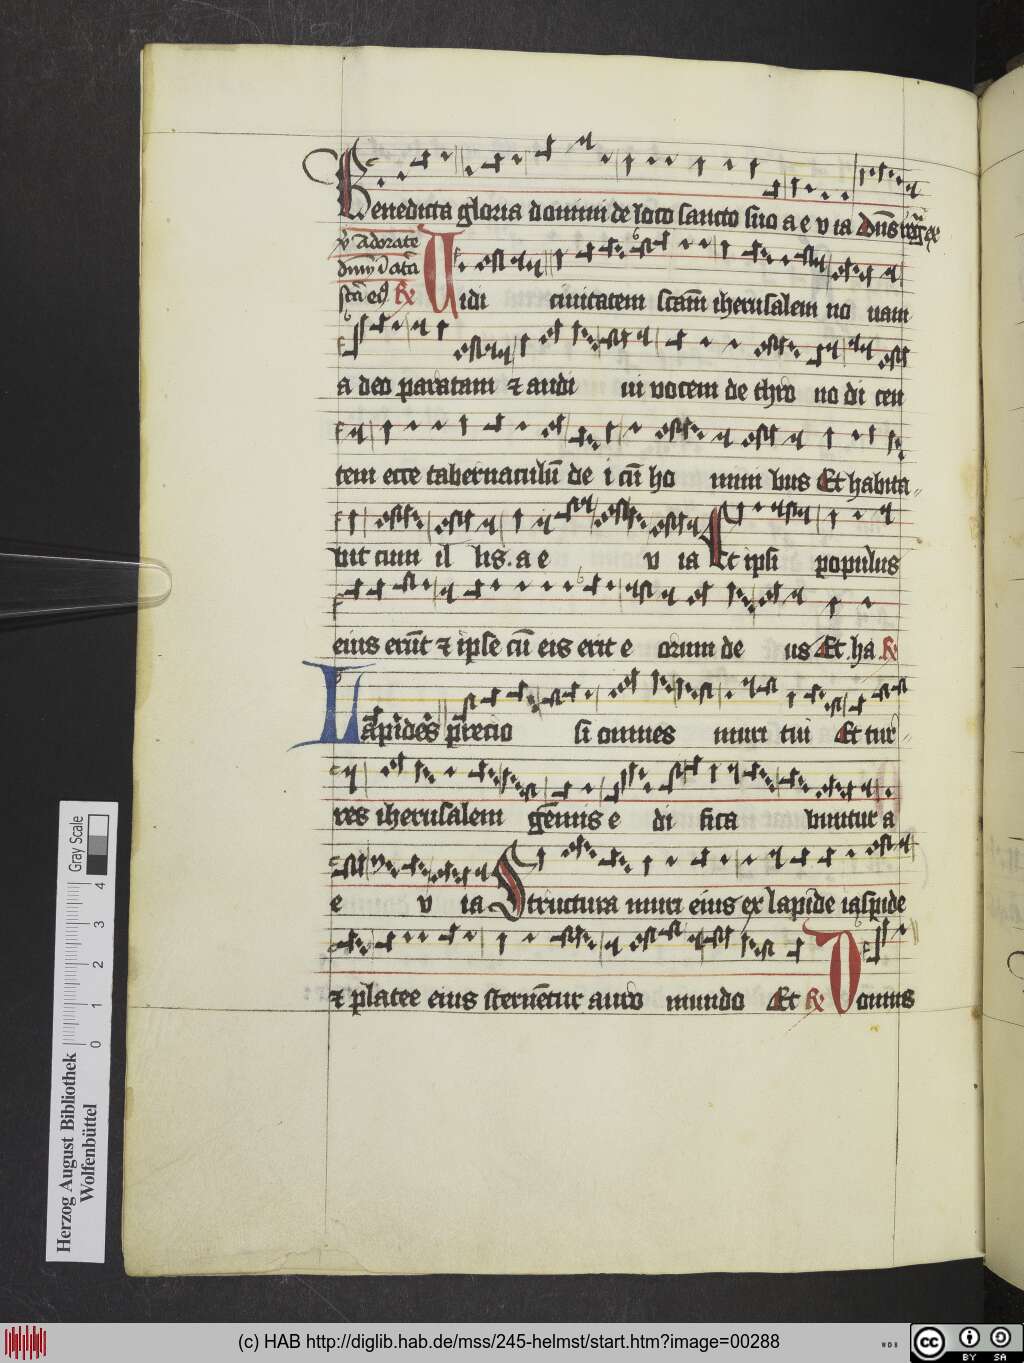 Benedicta gloria domini de loco sancto suo a e v ia
ps adorate
Vidi ciuitatem scam iherusalem no uam
a deo paratam ⁊ audi ui vocem de thro no di cen
tem ecce tabernaculū de i cū ho mini bus Et habita
bit cum il lis. a e v ia Et ipsi populus
eius erūt ⁊ ipse cū eis erit e orum de us Et ha
Lapides precio si omnes muri tui Et tur
res iherusalem gēmis e di fica buntur a
e v ia Structura muri eius ex lapide iaspide
⁊ platee eius sternētur auro mundo Et Domus
Gray Scale
4
3
2
1
0
Herzog August Bibliothek
Wolfenbüttel
(c) HAB http://diglib.hab.de/mss/245-helmst/start.htm?image=00288
WDB
cc
BY SA